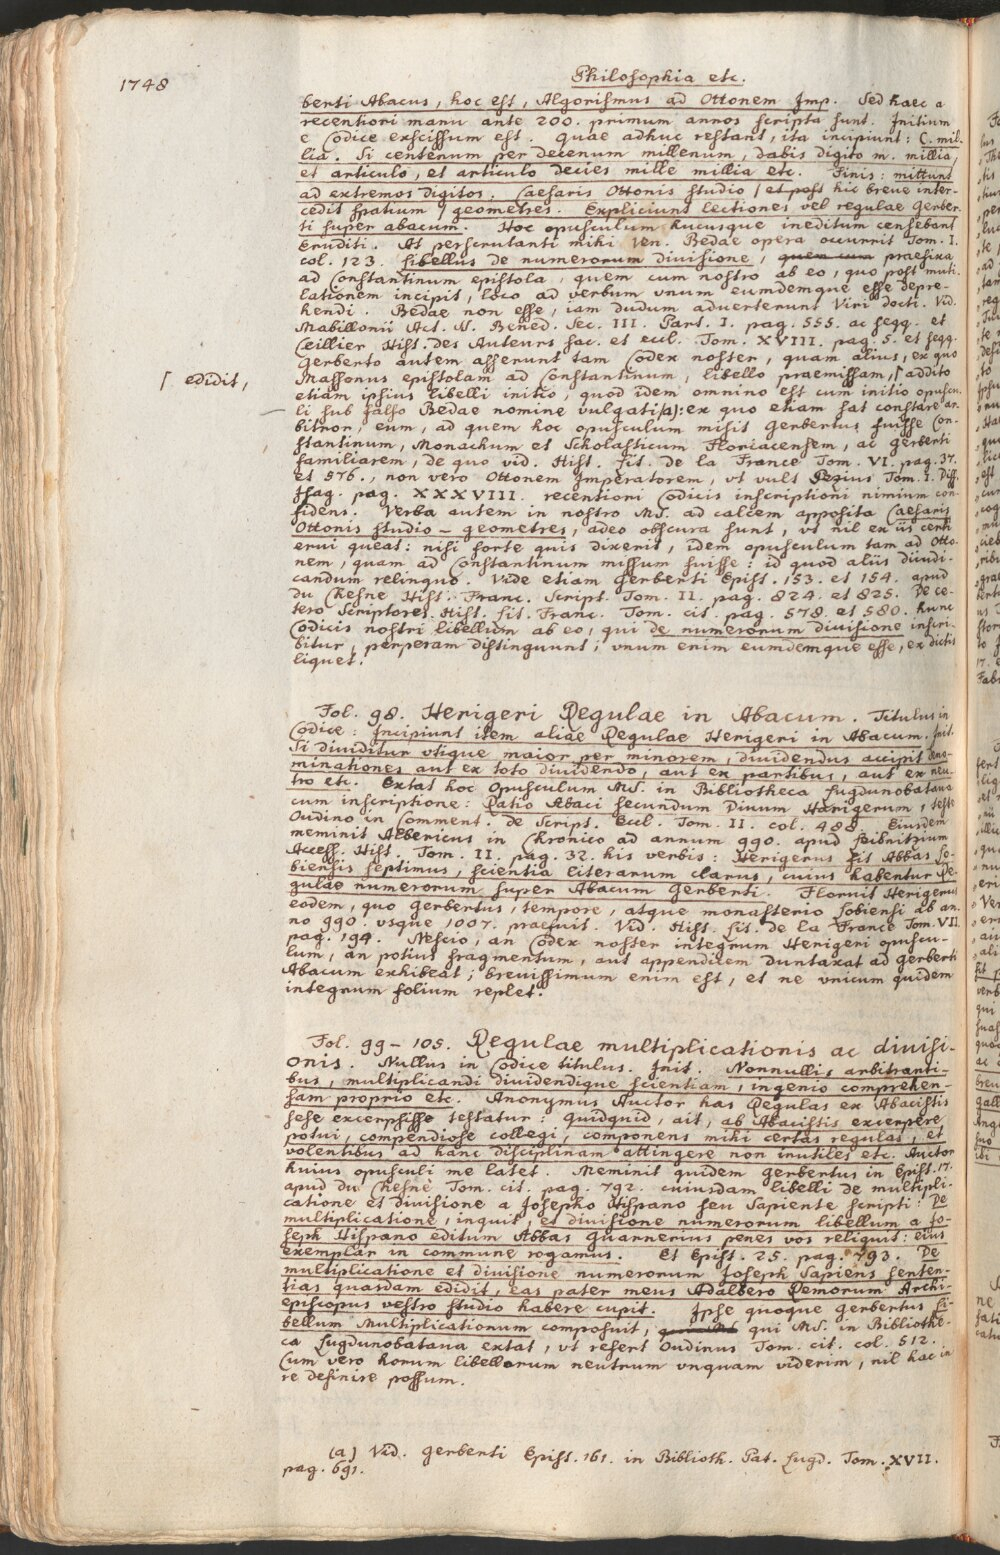 1748
Philosophia etc.
berti Abacus, hoc est, Algorismus ad Ottonem Imp. Sed haec a
recentiori manu ante 200. primum annos scripta sunt. Initium
e Codice exscissum est. Quae adhuc restant, ita incipiunt: C. mil-
lia. Si centenum per decenum millenum, dabis digito m. millia,
et articulo, et articulo decies mille millia etc. Finis: mittunt
ad extremos digitos. Caesaris Ottonis studio / et post hic breve inter-
cedit spatium / geometres. Expliciunt lectiones vel regulae Gerber-
ti super abacum. Hoc opusculum hucusque ineditum censebant
Eruditi. At perscrutanti mihi Ven. Bedae opera occurrit Tom. I.
col. 123. Libellus de numerorum divisione, quem cum praefixa
ad Constantinum epistola, quem cum nostro ab eo, quo post muti-
lationem incipit, loco ad verbum vnum eumdemque esse depre-
hendi. Bedae non esse, iam dudum aduerterunt Viri docti. Vid.
Mabillonii Act. S. Bened. Sec. III. Part. I. pag. 555. ac seqq. et
Ceillier Hist. des Auteurs sac. et eccl. Tom. XVIII. pag. 5. et seqq.
Gerberto autem asserunt tam Codex noster, quam alius, ex quo
Massonus epistolam ad Constantinum, libello praemissam, ⌈ addito
⌈ edidit,
etiam ipsius libelli initio, quod idem omnino est cum initio opuscu-
li sub falso Bedae nomine vulgati(a): ex quo etiam sat constare ar-
bitror, eum, ad quem hoc opusculum misit Gerbertus fuisse Con-
stantinum, Monachum et Scholasticum Floriacensem, ac Gerberti
familiarem, de quo vid. Hist. Lit. de la France Tom. VI. pag. 37.
et 576., non vero Ottonem Imperatorem, vt vult Pezius Tom. I. Diss.
Isag. pag. XXXVIII. recentiori Codicis inscriptioni nimium con-
fidens. Verba autem in nostro MS. ad calcem apposita Caesaris
Ottonis studio – geometres, adeo obscura sunt, vt nil ex iis certi
erui queat: nisi forte quis dixerit, idem opusculum tam ad Otto-
nem, quam ad Constantinum missum fuisse: id quod aliis diiudi-
candum relinquo. Vide etiam Gerberti Epist. 153. et 154. apud
du Chesne Hist. Franc. Script. Tom. II. pag. 824. et 825. De ce-
tero Scriptores Hist. Lit. Franc. Tom. cit. pag. 578. et 580. hunc
Codicis nostri libellum ab eo, qui de numerorum divisione inscri-
bitur, perperam distinguunt; vnum enim eumdemque esse, ex dictis
liquet.
Fol. 98. Herigeri Regulae in Abacum. Titulus in
Codice: Incipiunt item aliae Regulae Herigeri in Abacum. Init.
Si diuiditur vtique maior per minorem, diuidendus accipit deno-
minationes aut ex toto diuidendo, aut ex partibus, aut ex neu-
tro etc. Extat hoc Opusculum MS. in Bibliotheca Lugdunobatava
cum inscriptione: Ratio Abaci secundum Diuum Harigerum, teste
Oudino in Comment. de Script. Eccl. Tom. II. col. 488. Eiusdem
meminit Albericus in Chronico ad annum 990. apud Leibnitzium
Access. Hist. Tom. II. pag. 32. his verbis: Herigerus fit Abbas Lo-
biensis septimus, scientia literarum clarus, cuius habentur Re-
gulae numerorum super Abacum Gerberti. Floruit Herigerus
eodem, quo Gerbertus, tempore, atque monasterio Lobiensi ab an-
no 990. vsque 1007. praefuit. Vid. Hist. Lit. de la France Tom. VII.
pag. 194. Nescio, an Codex noster integrum Herigeri opuscu-
lum, an potius fragmentum, aut appendicem duntaxat ad Gerberti
Abacum exhibeat; breuissimum enim est, et ne vnicum quidem
integrum folium replet.
Fol. 99 – 105. Regulae multiplicationis ac divisi-
onis. Nullus in Codice titulus. Init. Nonnullis arbitranti-
bus, multiplicandi dividendique scientiam, ingenio comprehen-
sam proprio etc. Anonymus Auctor has Regulas ex Abacistis
sese excerpsisse testatur: Quidquid, ait, ab Abacistis excerpere
potui, compendiose collegi, componens mihi certas regulas, et
volentibus ad hanc disciplinam attingere non inutiles etc. Auctor
huius opusculi me latet. Meminit quidem Gerbertus in Epist. 17.
apud du Chesne Tom. cit. pag. 792. cuiusdam libelli de multipli-
catione et divisione a Josepho Hispano seu Sapiente scripti: De
multiplicatione, inquit, et divisione numerorum libellum a Jo-
seph Hispano editum Abbas Guarnerius penes vos reliquit: eius
exemplar in commune rogamus. Et Epist. 25. pag. 793. De
multiplicatione et divisione numerorum Joseph Sapiens senten-
tias quasdam edidit, eas pater meus Adalbero Remorum Archi-
episcopus vestro studio habere cupit. Ipse quoque Gerbertus Li-
bellum Multiplicationum composuit, qui MS. in Bibliothe-
ca Lugdunobatava extat, vt refert Oudinus Tom. cit. col. 512.
Cum vero horum libellorum neutrum vnquam viderim, nil hac in
re definire possum.
(a) Vid. Gerberti Epist. 161. in Biblioth. Pat. Lugd. Tom. XVII.
pag. 691.